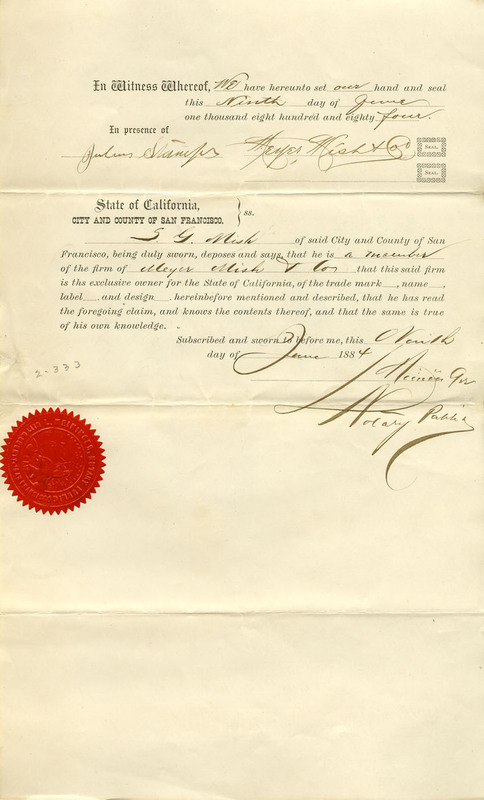 In Witness Whereof, We have hereunto set our hand and seal
this Ninth day of June
one thousand eight hundred and eighty four.
In presence of
Julius Meyer, Mish & Co
Seal.
Seal.
State of California,
CITY AND COUNTY OF SAN FRANCISCO. } ss.
S G. Mish of said City and County of San
Francisco, being duly sworn, deposes and says, that he is a member
of the firm of Meyer Mish & Co's that this said firm
is ths exclusive owner for the State of California, of the trade mark , name ,
label , and design , hereinbefore mentioned and described, that he has read
the foregoing claim, and knows the contents thereof, and that the same is true
of his own knowledge.
Subscribed and sworn to before me, this Ninth
day of June 1884
Notary Public
2-333